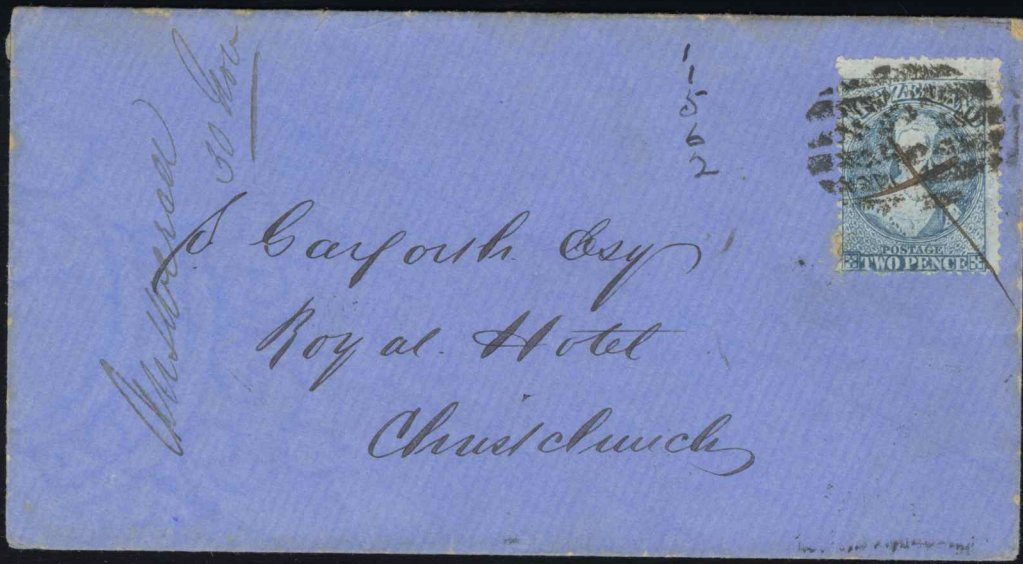 Answered
30 Nov
1
1
5
6
2
NEW ZEALAND
POSTAGE
TWO PENCE
S Garforth Esq
Royal Hotel
Christchurch